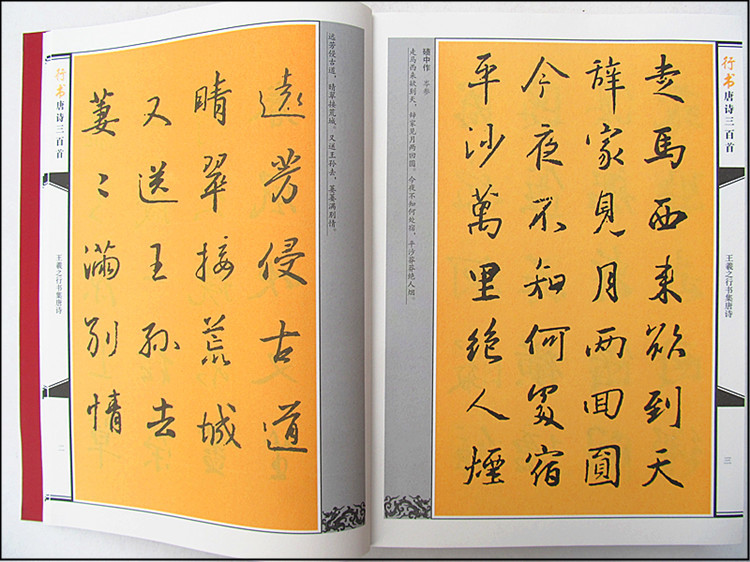 行书唐诗三百首
王羲之行书集唐诗
二
远芳侵古道，晴翠接荒城。又送王孙去，萋萋满别情。
遠芳侵古道
晴翠接荒城
又送王孫去
萋〻滿別情
行书唐诗三百首
王羲之行书集唐诗
三
走馬西來欲到天
辭家見月兩回圓
今夜不知何處宿
平沙萬里絕人煙
碛中作 岑参
走马西来欲到天，辞家见月两回圆。今夜不知何处宿，平沙莽莽绝人烟。